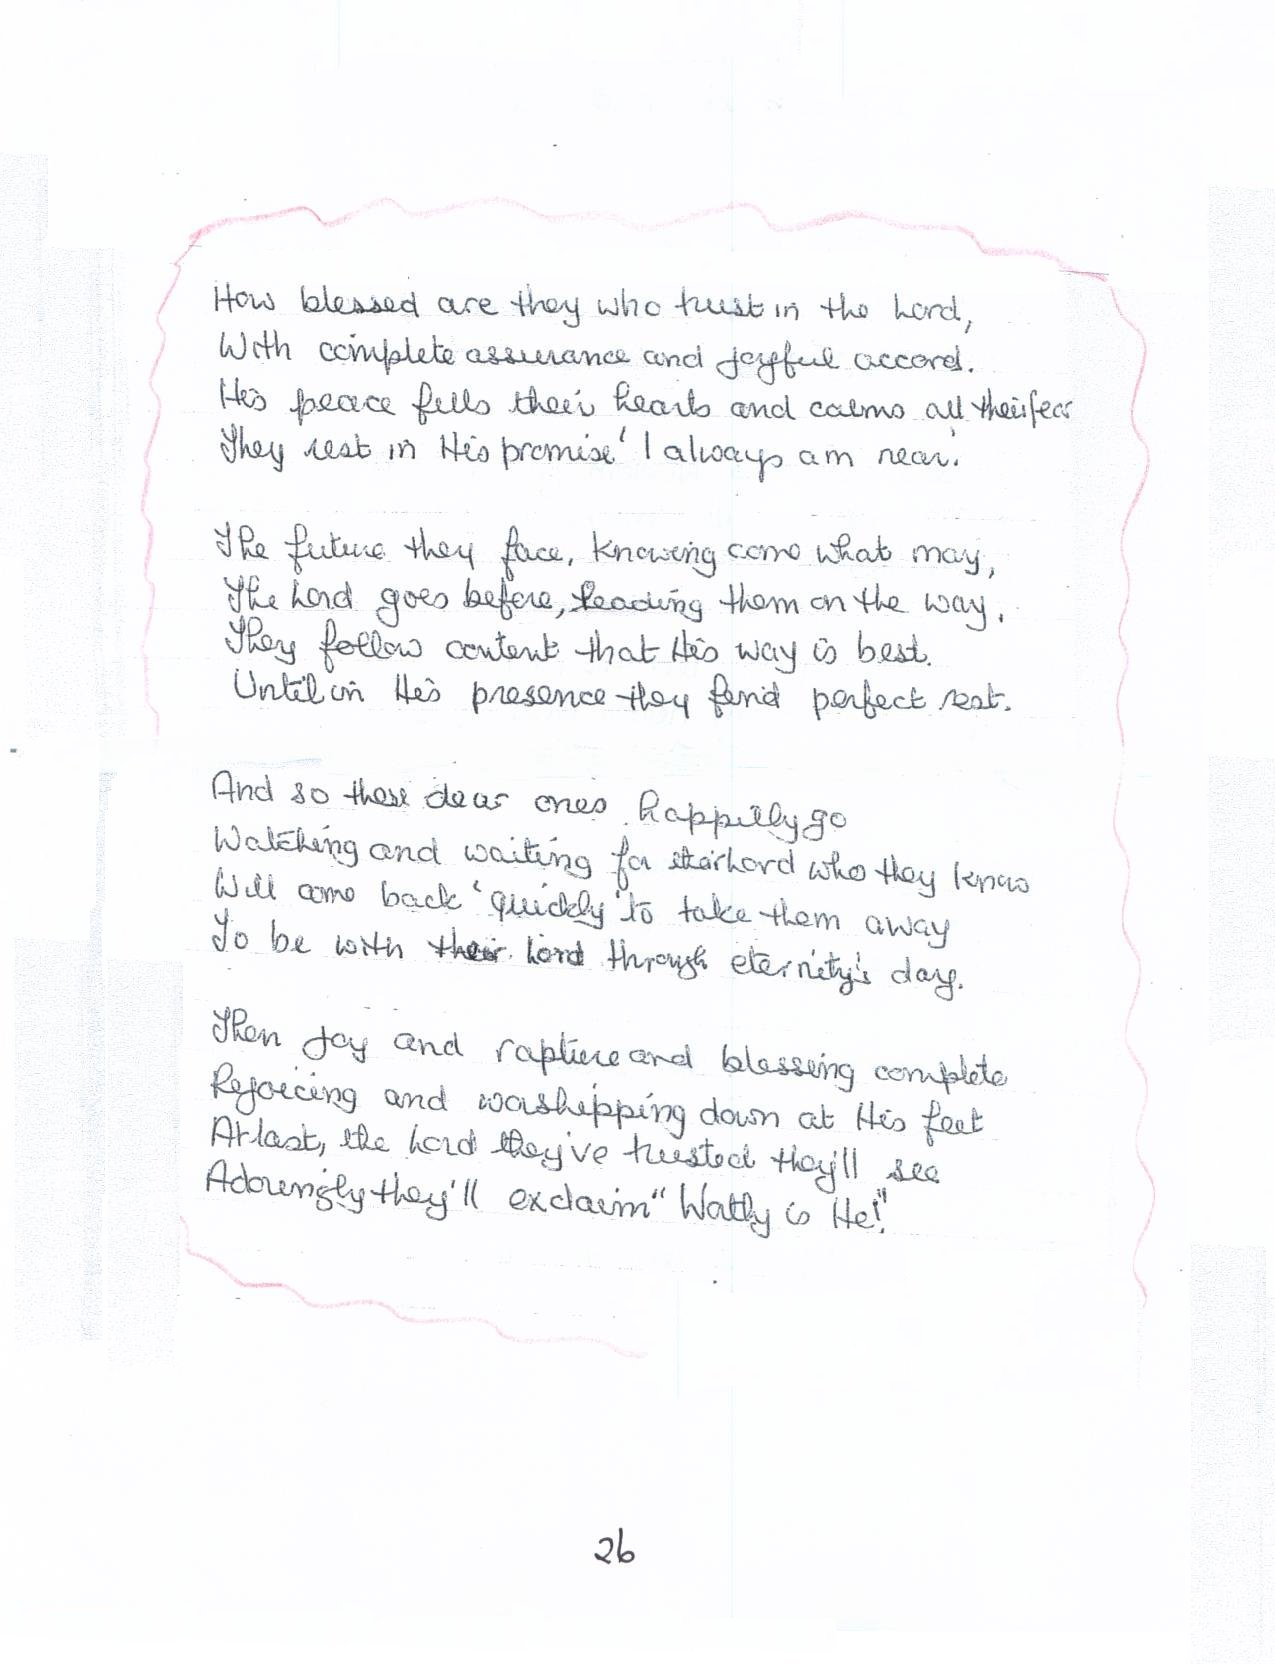 How blessed are they who trust in the Lord,
With complete assurance and joyful accord.
His peace fills their hearts and calms all their fear
They rest in His promise 'I always am near.'
The future they face, knowing come what may,
The Lord goes before, leading them on the way.
They follow content that His way is best.
Until in His presence they find perfect rest.
And so these dear ones happily go
Watching and waiting for their Lord who they know
Will come back 'quickly' to take them away
To be with their Lord through eternity's day.
Then joy and rapture and blessing complete
Rejoicing and worshipping down at His feet
At last, the Lord they've trusted they'll see
Adoringly they'll exclaim "Worthy is He!"
26